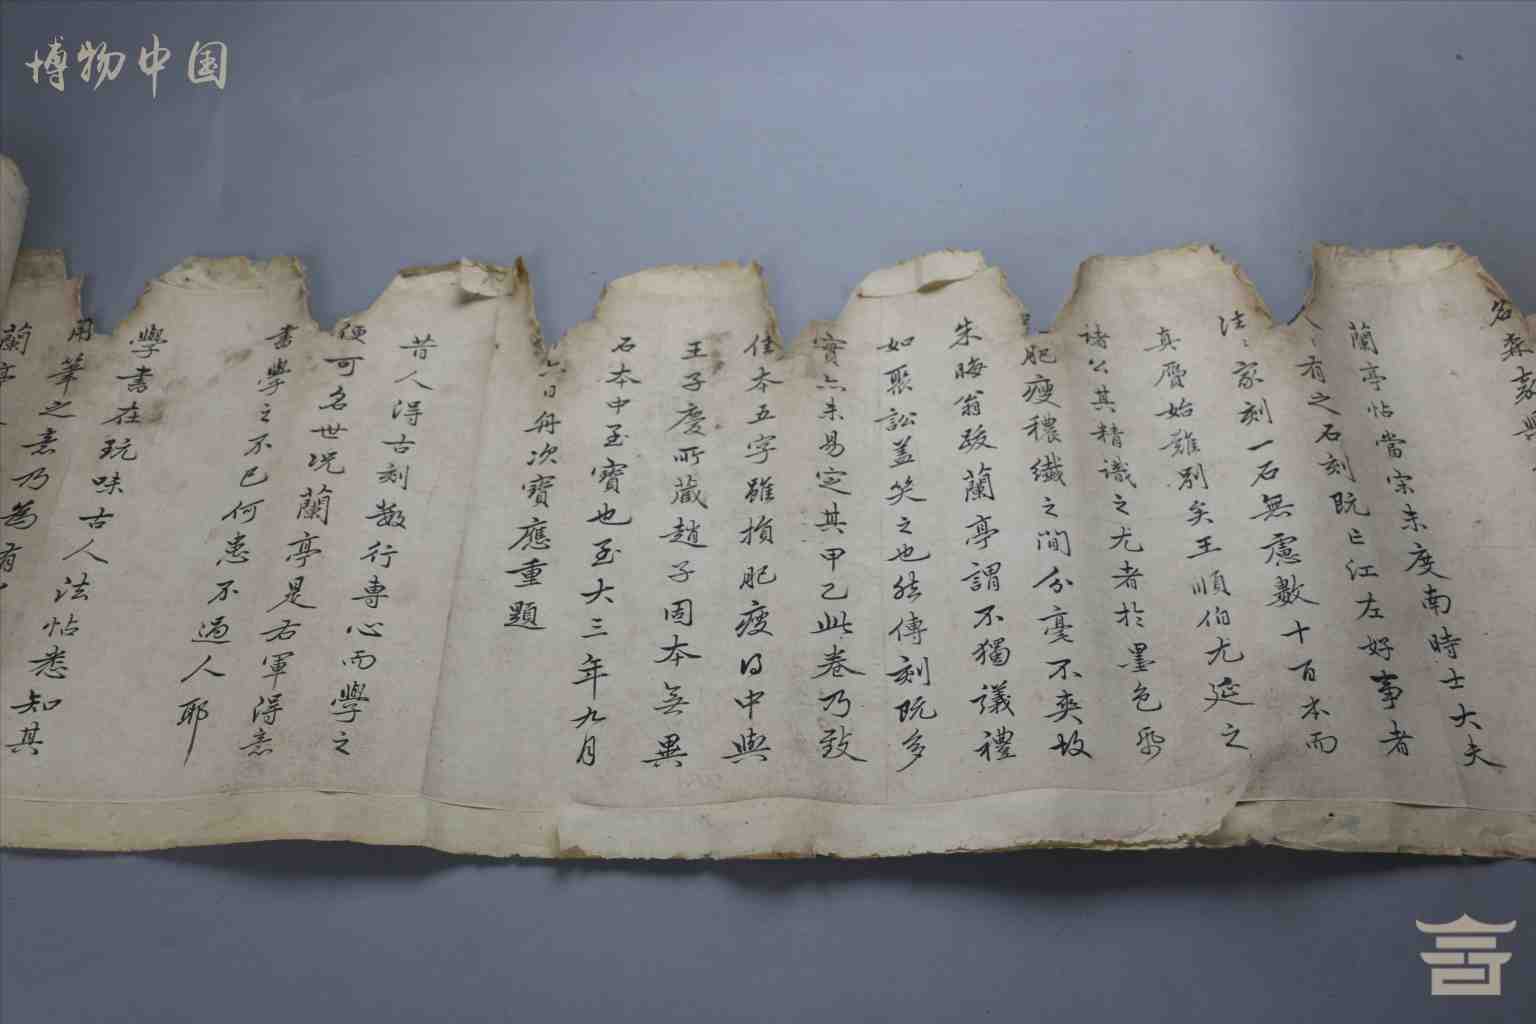 蘭亭帖當宋未度南時士大夫
人〻有之石刻既亡江左好事者
往〻家刻一石無慮數十百本而
真贗始難別矣王順伯尤延之
諸公其精識之尤者於墨色
肥瘦穠纖之間分毫不爽故
朱晦翁跋蘭亭謂不獨議禮
如聚訟蓋笑之也然傳刻既多
實亦未易定其甲乙此卷乃致
佳本五字雖損肥瘦得中與
王子慶所藏趙子固本無異
石本中至寶也至大三年九月
六日舟次寶應重題
昔人得古刻數行專心而學之
便可名世況蘭亭是右軍得意
書學之不已何患不過人耶
學書在玩味古人法帖悉知其
用筆之意乃為有
蘭亭
博物中国